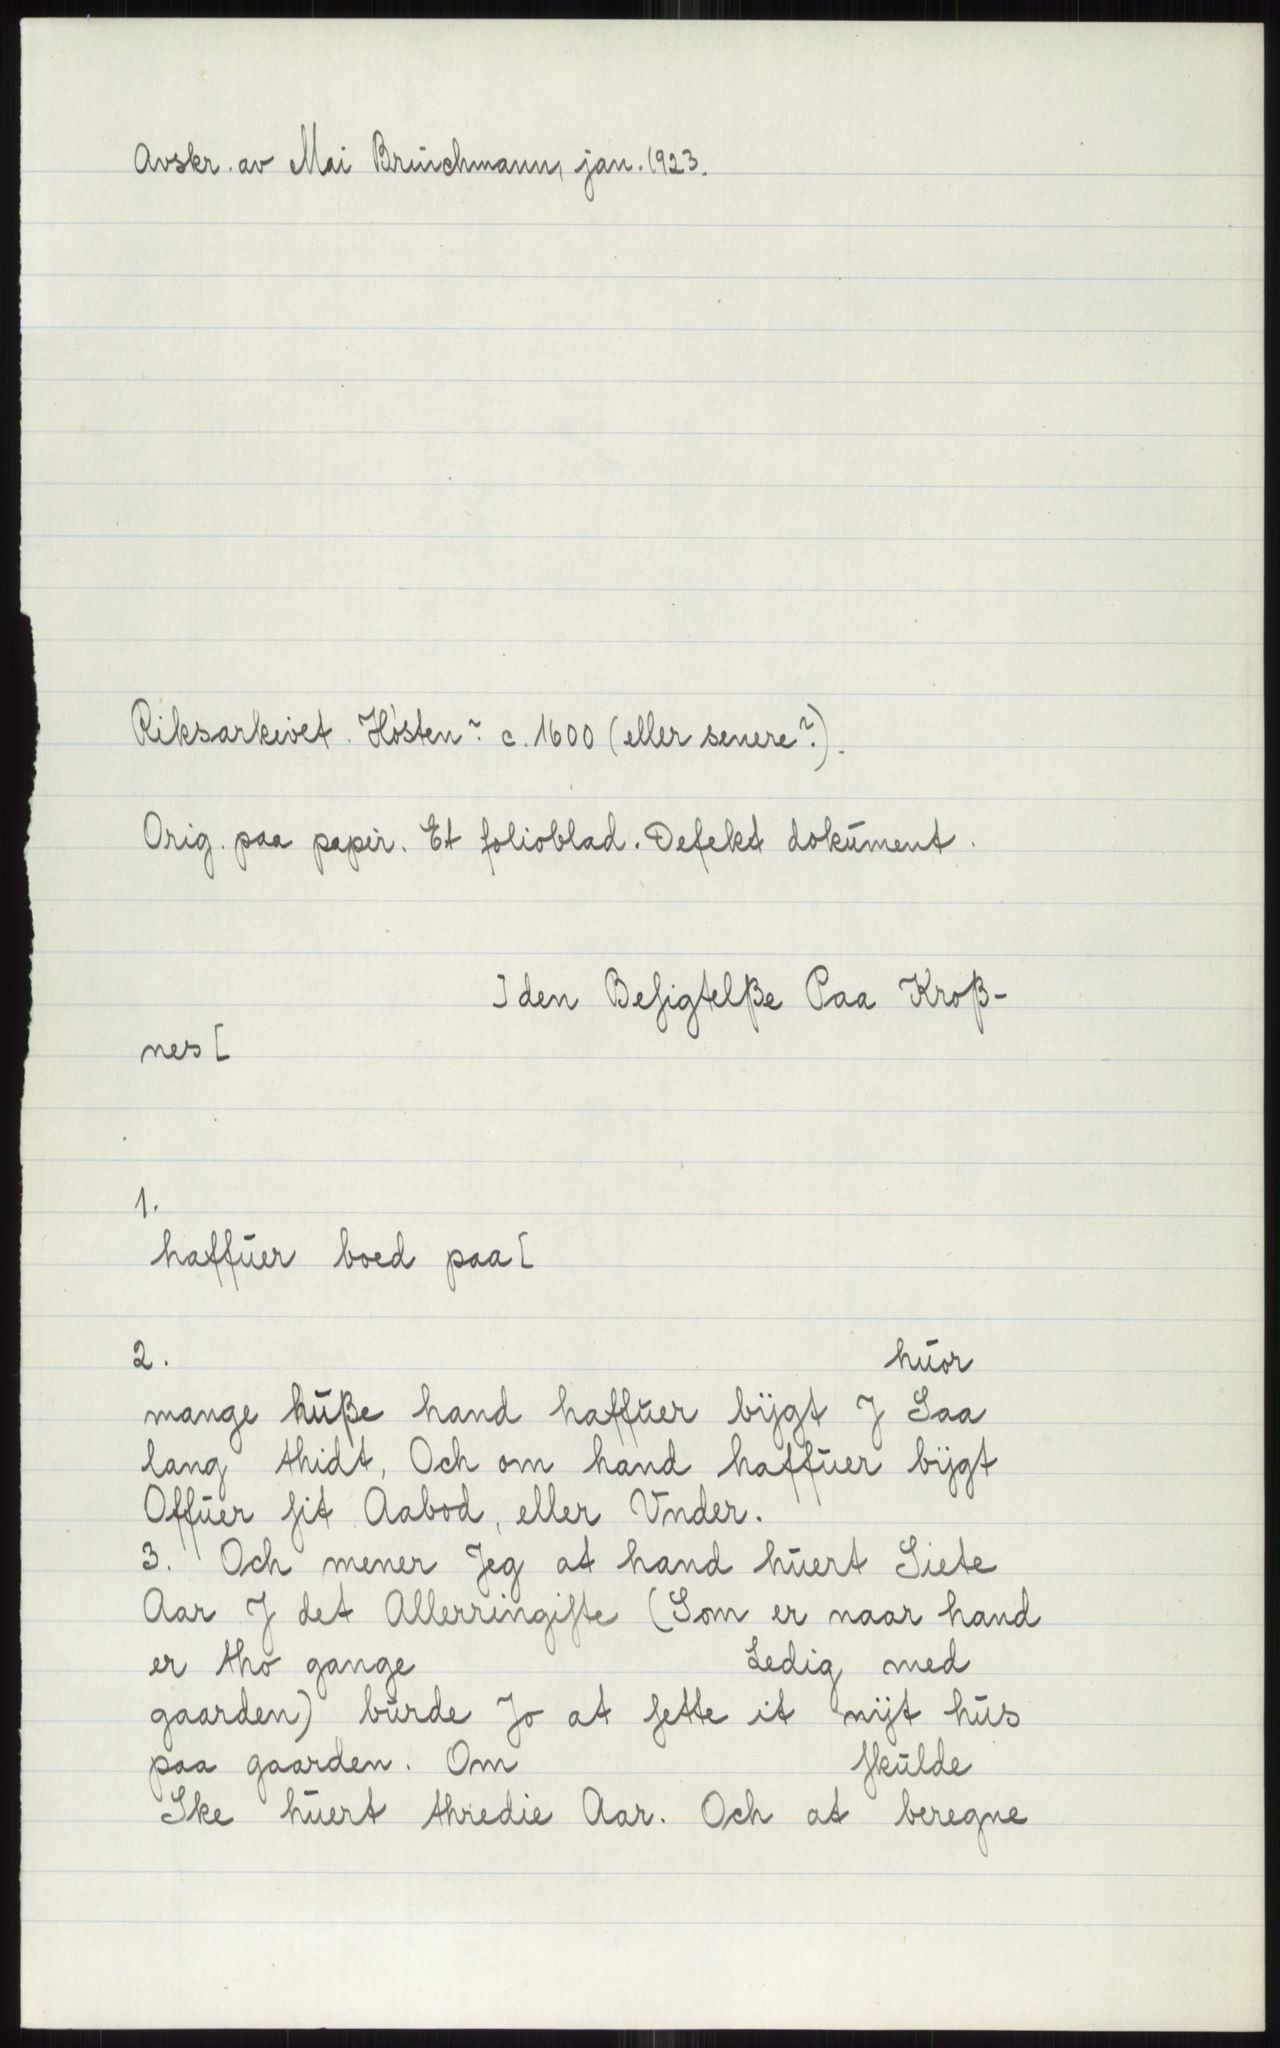 Avskr. av Mai Brúchmann, jan. 1923.
Riksarkivet. Høsten? c. 1600 (eller senere?).
Orig. paa papir. Et folioblad. Defekt dokúment.
] den Beſigtelße Paa Kroß-
nes [
1.
haffúer boed paa [
2. húor
mange húße hand haffúer bÿgt J Saa
lang thidt, Och om hand haffúer bÿgt
Offúer ſit Aabod, eller Vnder.
3. Och mener Jeg at hand húert Siete
Aar J det Allerringiſte (Som er naar hand
er tho gange Ledig med
gaarden) búrde Jo at ſette it nÿt hús
paa gaarden. Om ſkúlde
Ske húert thredie Aar. Och at beregne